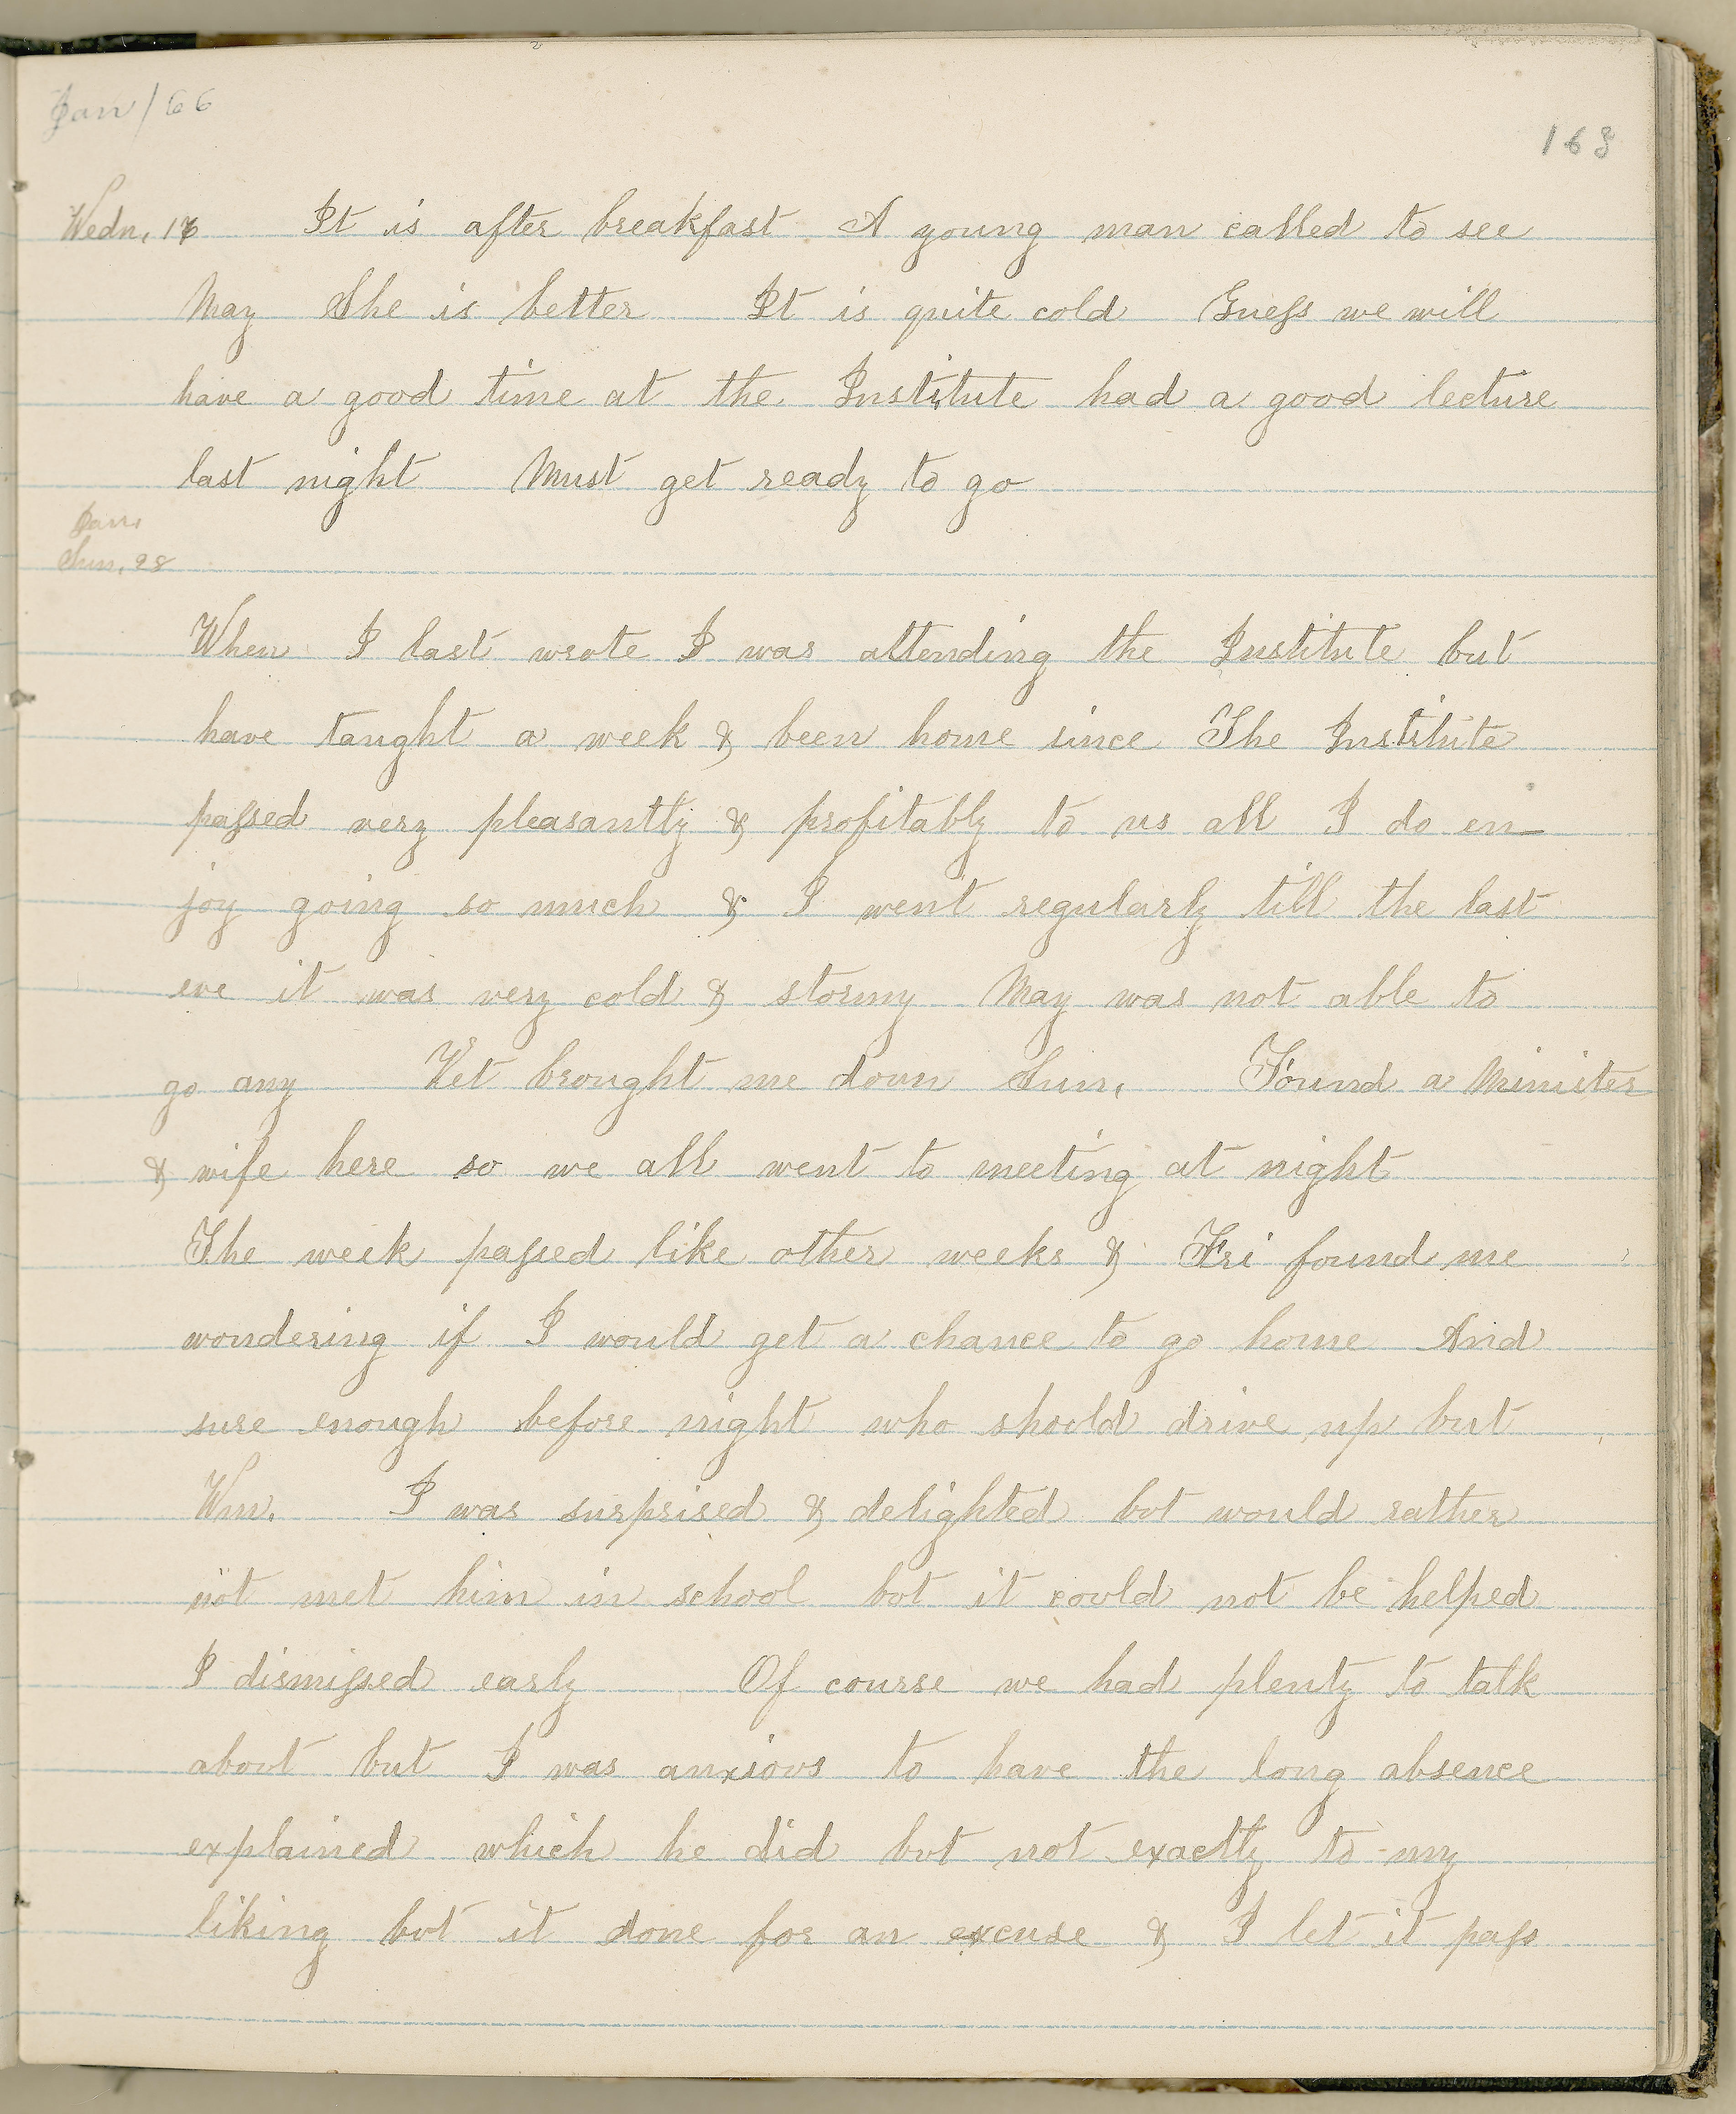 Jan / 66
163
Wedn, 17 It is after breakfast A young man called to see
May She is better It is quite cold Guess we will
have a good time at the Institute had a good lecture
last night Must get ready to go
Jan,
Sun, 28
When I last wrote I was attending the Institute but
have taught a week & been home since The Institute
passed very pleasantly & profitably to us all I do en-
joy going so much & I went regularly till the last
eve it was very cold & stormy May was not able to
go any Vet brought me down Sun, Found a Minister
& wife here so we all went to meeting at night
The week passed like other weeks & Fri found me
wondering if I would get a chance to go home And
sure enough before night who should drive up but
Wm. I was surprised & delighted but would rather
not met him in school but it could not be helped
I dismissed early Of course we had plenty to talk
about but I was anxious to have the long absence
explained which he did but not exactly to my
liking but it done for an excuse & I let it pass